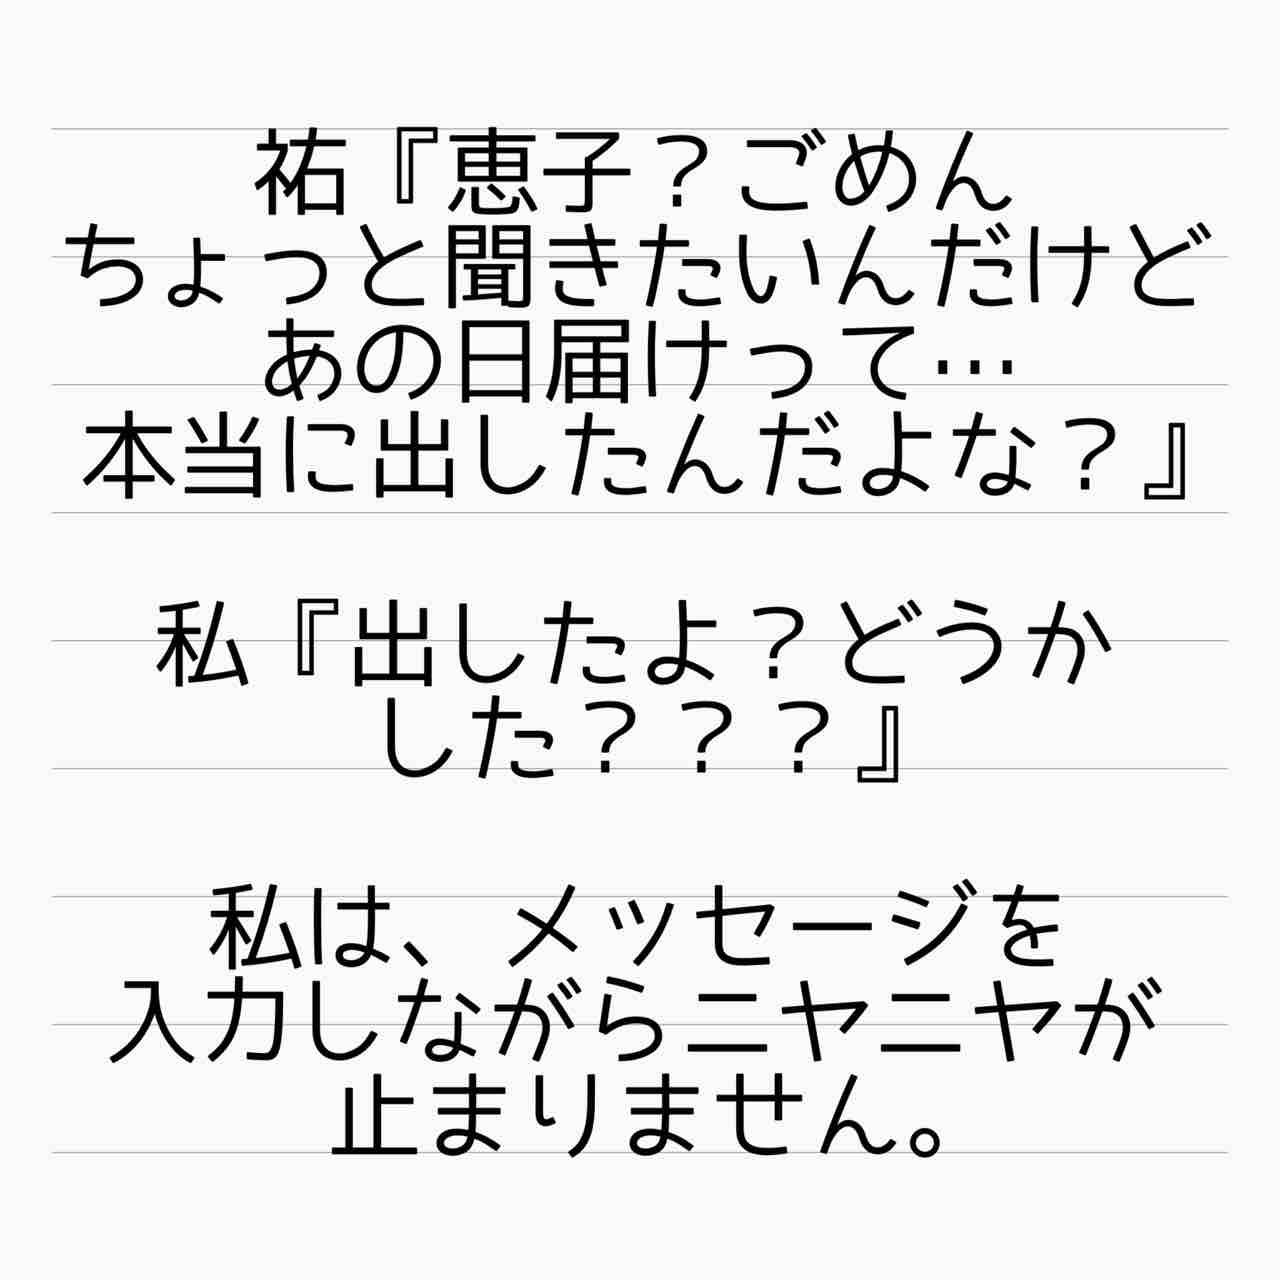 祐『恵子？ごめん
ちょっと聞きたいんだけど
あの日届けって…
本当に出したんだよな？』
私『出したよ？どうか
した？？？』
私は、メッセージを
入力しながらニヤニヤが
止まりません。